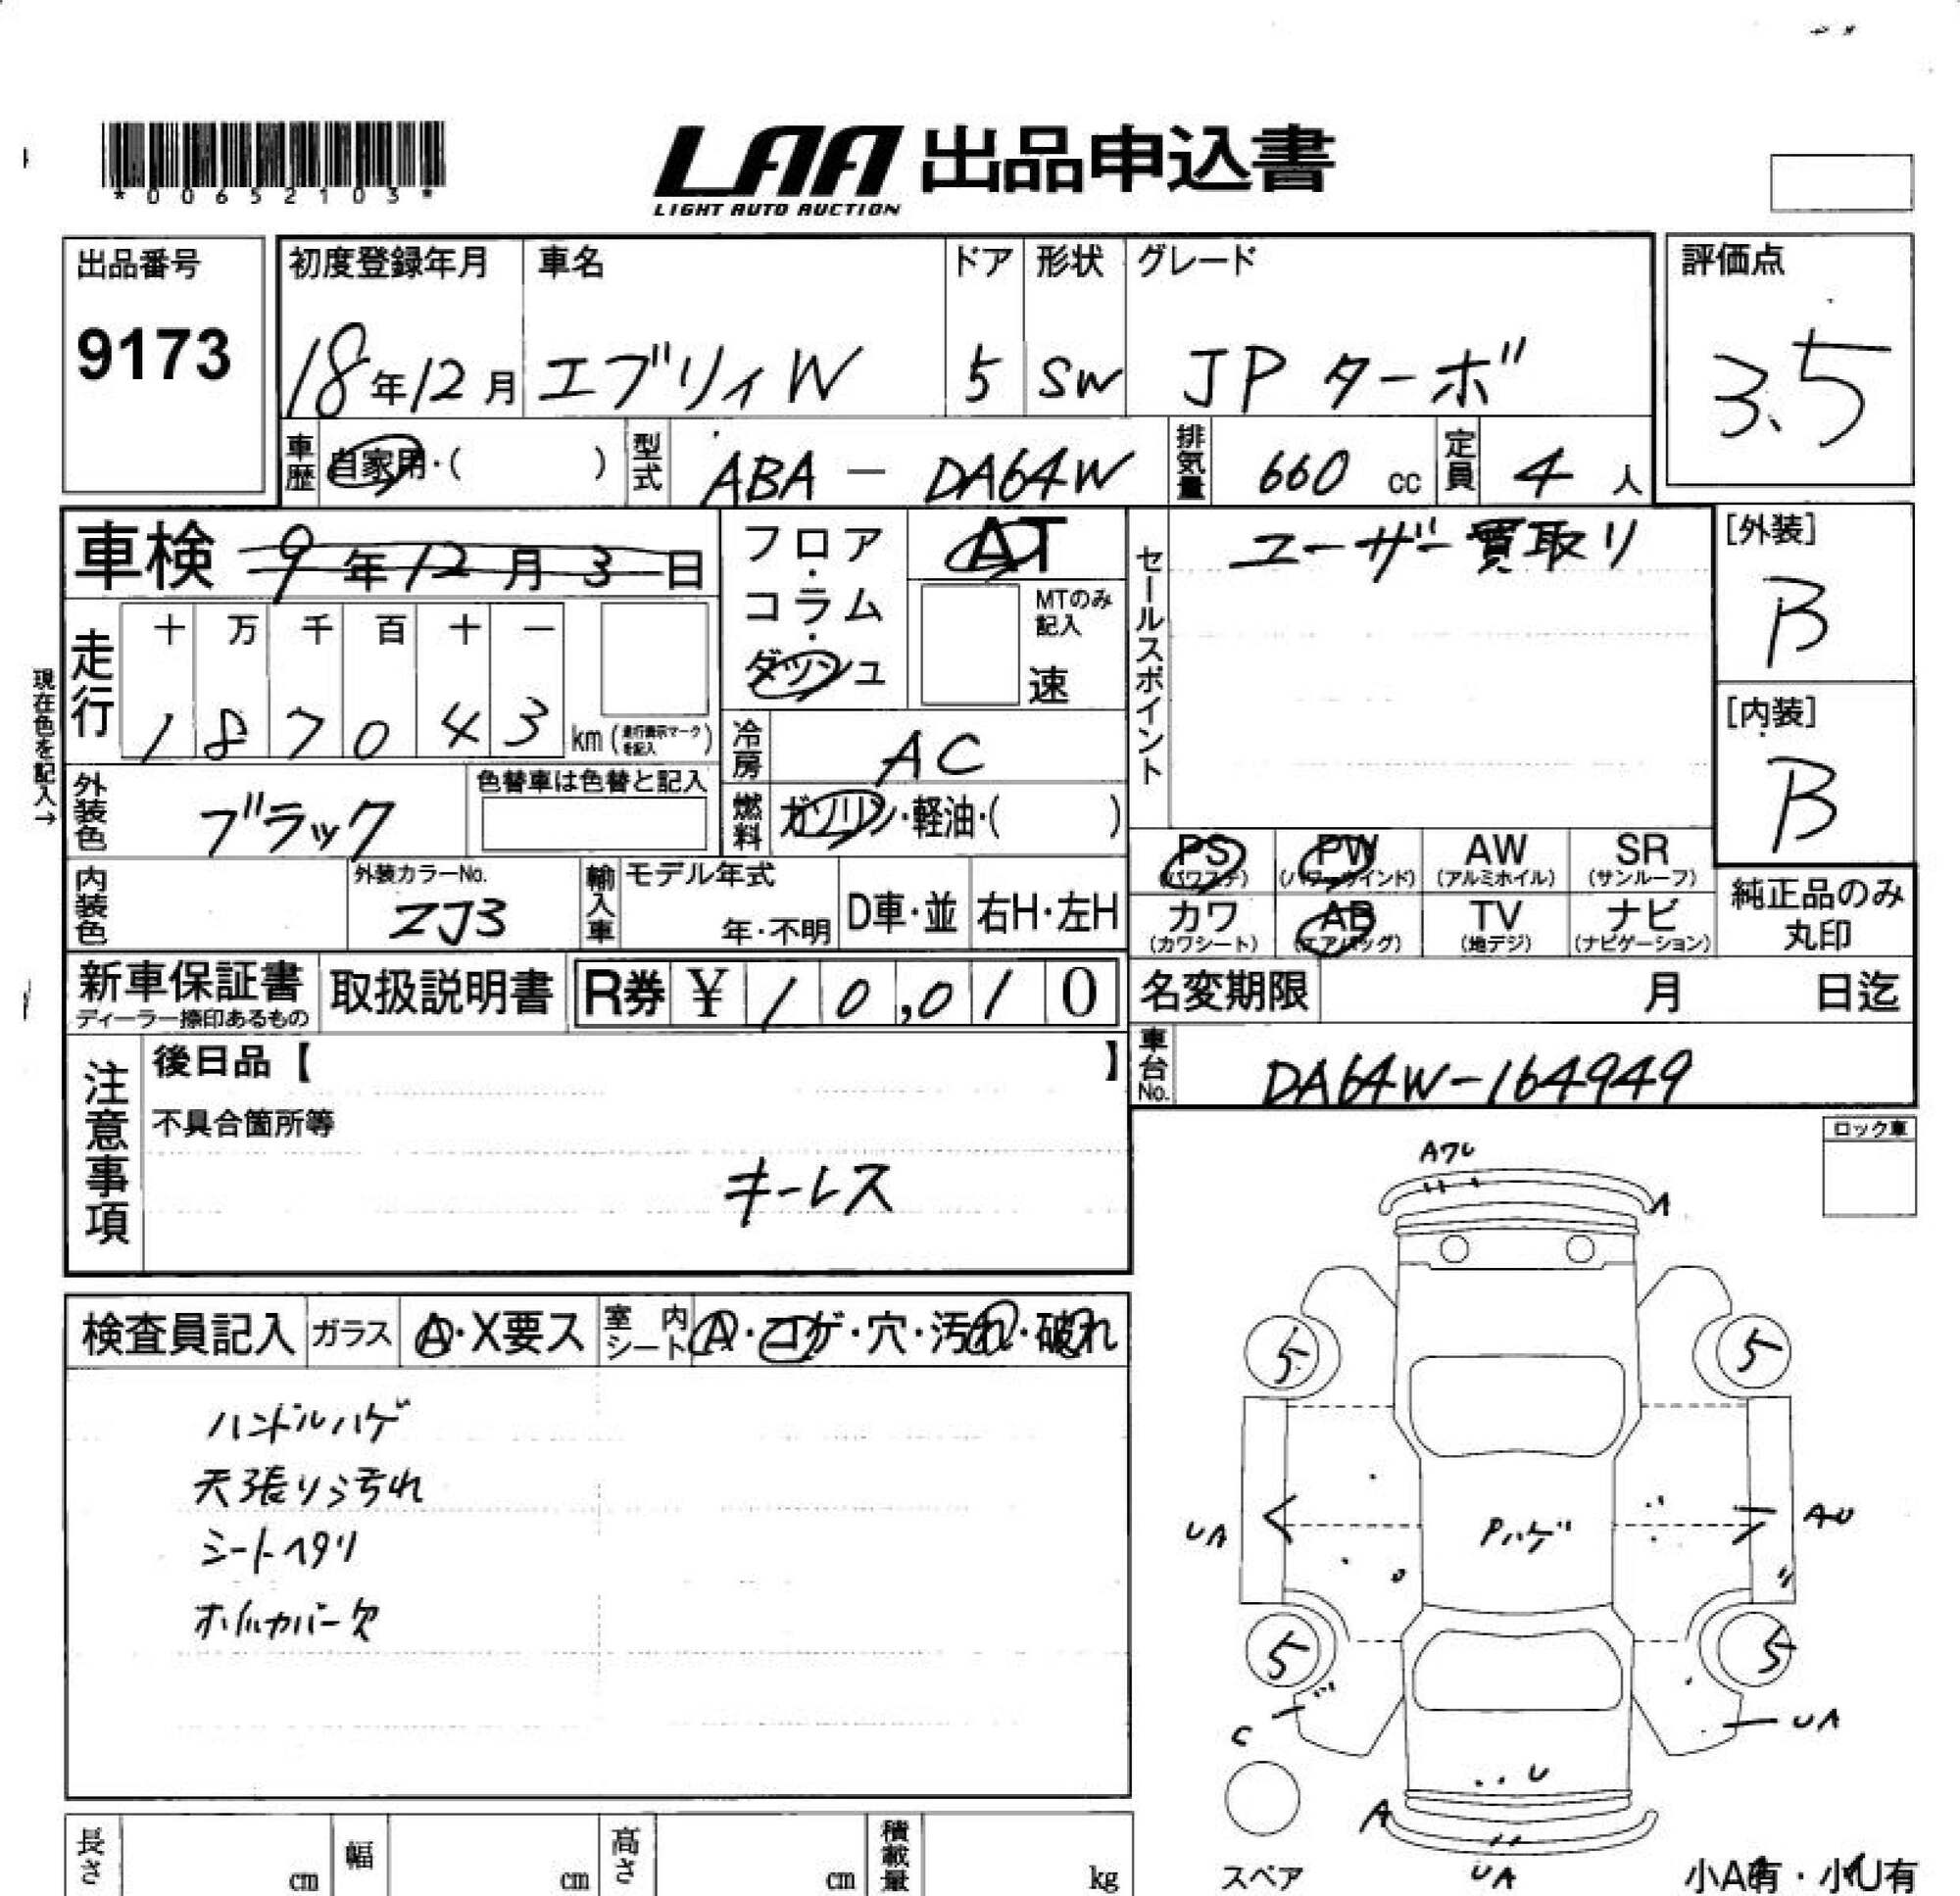 *00652103*
LAA 出品申込書
LIGHT AUTO AUCTION
出品番号
9173
初度登録年月 車名 ドア 形状 グレード
18年12月 エブリィW 5 SW JPターボ
評価点
3.5
車歴 自家用・( ) 型式 ABA-DA64W 排気量 660 cc 定員 4 人
車検 9年12月3日
フロア・コラム・ダッシュ
AT
MTのみ記入
速
セールスポイント
ユーザー買取り
[外装]
B
[内装]
B
現在色を記入→
走行
十 万 千 百 十 一
1 8 7 0 4 3 km (走行表示マークを記入)
冷房 AC
外装色 ブラック
色替車は色替と記入
燃料 ガソリン・軽油・( )
PS (パワステ) PW (パワーウインド) AW (アルミホイル) SR (サンルーフ)
カワ (カワシート) AB (エアバッグ) TV (地デジ) ナビ (ナビゲーション)
純正品のみ丸印
内装色
外装カラーNo.
ZJ3
輸入車 モデル年式 年・不明 D車・並 右H・左H
新車保証書
ディーラー捺印あるもの
取扱説明書
R券 ¥ 10,010
名変期限 月 日迄
車台No. DA64W-164949
注意事項
後日品【 】
不具合箇所等
キーレス
ロック車
検査員記入 ガラス A・X要ス 室内シート A・コゲ・穴・汚れ・破れ
ハンドルハゲ
天張リシ汚れ
シートヘタリ
ホイルカバー欠
Aワレ
A
5 5
UA
Pハゲ
AU
5 5
C
UA
U
A
UA
スペア
小A有・小U有
長さ cm 幅 cm 高さ cm 積載量 kg